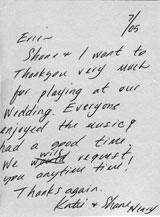 7/05
Erin-
Shane & I want to
Thankyou very much
for playing at our
wedding. Everyone
enjoyed the music &
had a good time,
We will request
you anytime time!
Thanks again.
Katie & Shane